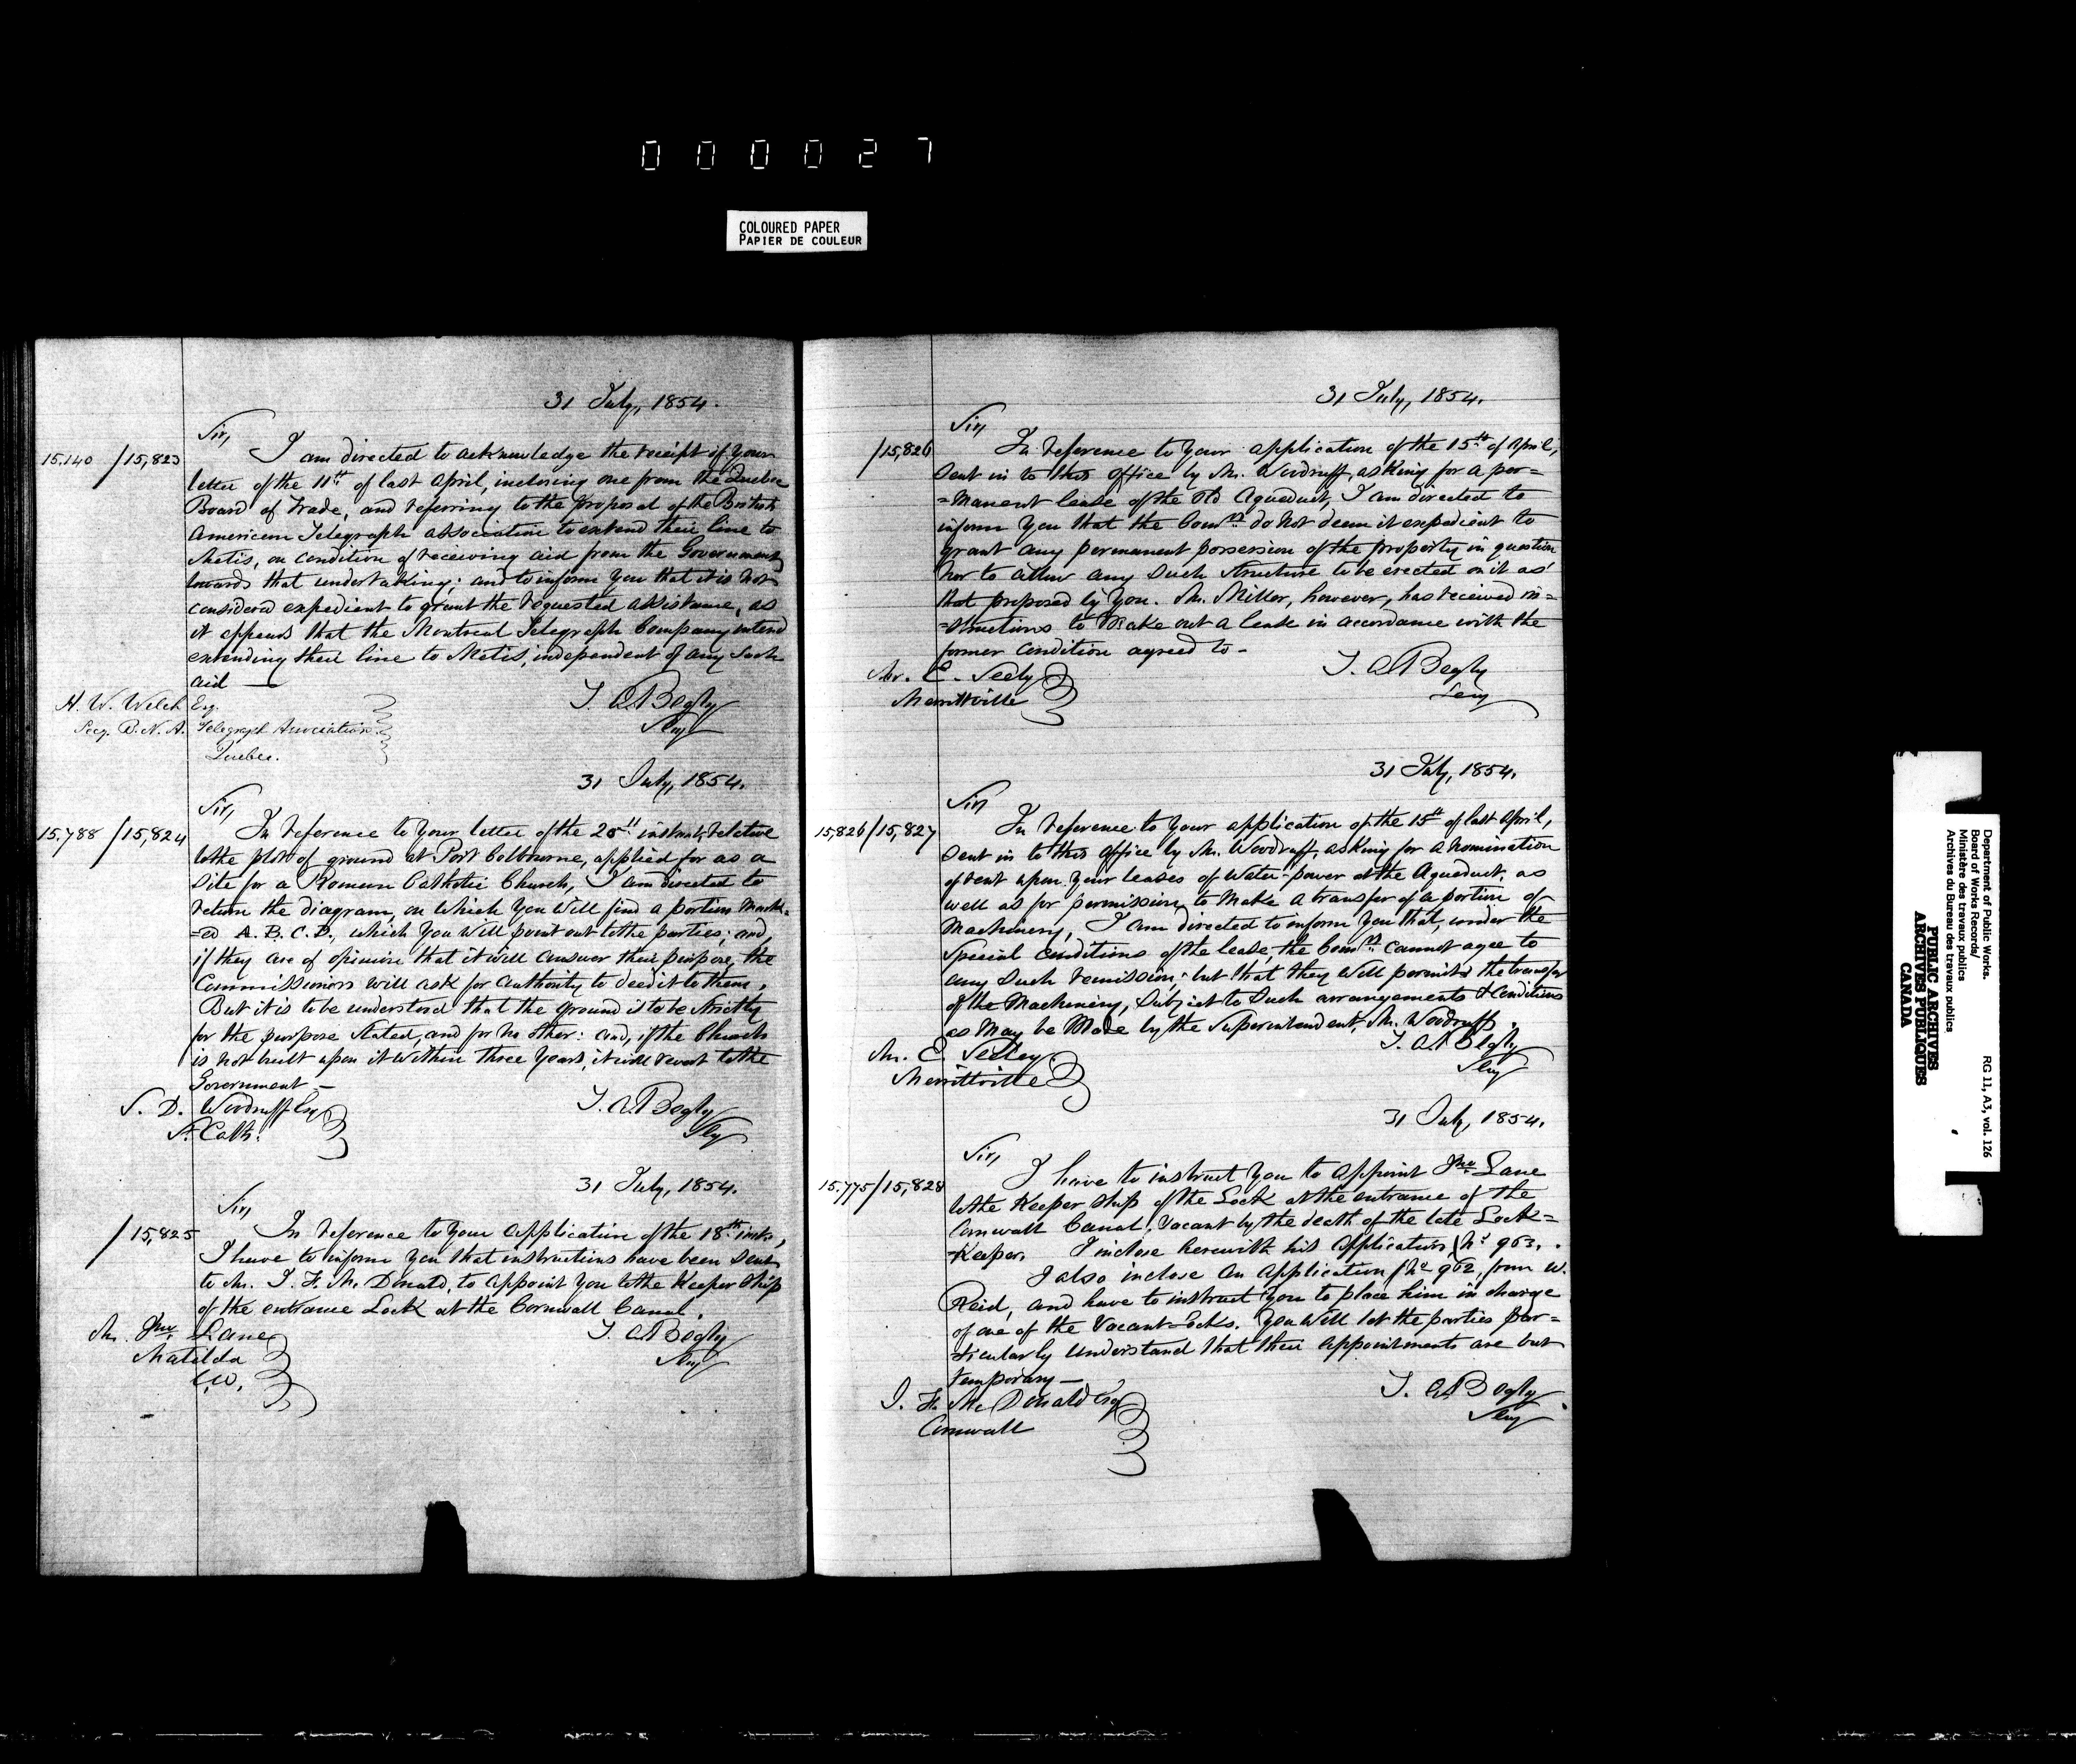 000027
COLOURED PAPER
PAPIER DE COULEUR
31 July, 1854.
Sir,
15.140 /15,823 I am directed to acknowledge the receipt of your
letter of the 11th of last April, inclosing one from the Quebec
Board of Trade, and referring to the proposal of the British
American Telegraph Association to extend their line to
Metis, on condition of receiving aid from the Government
towards that undertaking; and to inform you that it is not
considered expedient to grant the requested assistance, as
it appears that the Montreal Telegraph Company intend
extending their line to Metis, independent of any such
aid —
H. W. Welch Esq. T. A. Begly
Secy. B. N. A. Telegraph Association Secy
Quebec.
31 July, 1854.
Sir,
15.788 /15,824 In reference to your letter of the 20th instant, relative
to the plot of ground at Port Colbourne, applied for as a
site for a Roman Catholic Church, I am directed to
return the diagram, on which you will find a portion mark=
=ed A. B. C. D., which you will point out to the parties; and,
if they are of opinion that it will answer their purpose, the
Commissioners will ask for authority to deed it to them.
But it is to be understood that the ground is to be strictly
for the purpose stated, and for no other: and, if the Church
is not built upon it within three years, it will revert to the
Government —
S. D. Woodruff Esq T. A. Begly
St. Cath: Secy
31 July, 1854.
Sir,
/15,825 In reference to your application of the 18th inst,
I have to inform you that instructions have been sent
to Mr. J. F. McDonald, to appoint you to the Keeper Ship
of the entrance Lock at the Cornwall Canal.
Mr. Jno Lane T. A. Begly
Matilda Secy
C.W.
31 July, 1854.
Sir,
/15,826 In reference to your application of the 15th of April,
sent in to this office by Mr. Woodruff, asking for a per=
=manent lease of the old Aqueduct, I am directed to
inform you that the Comrs do not deem it expedient to
grant any permanent possession of the property in question
nor to allow any such structure to be erected on it as
that proposed by you. Mr. Miller, however, has received in=
=structions to make out a lease in accordance with the
former condition agreed to -
Mr. E. Seely T. A. Begly
Merrittville Secy
31 July, 1854.
Sir,
15,826/15,827 In reference to your application of the 15th of last April,
sent in to this office by Mr. Woodruff, asking for a remission
of rent upon your leases of water-power at the Aqueduct, as
well as for permission to make a transfer of a portion of
Machinery, I am directed to inform you that, under the
special conditions of the lease, the Comrs cannot agree to
any such remission; but that they will permit the transfer
of the Machinery, subject to such arrangements & conditions
as may be made by the Superintendent, Mr. Woodruff.
Mr. E. Seeley T. A. Begly
Merrittville Secy
31 July, 1854.
Sir,
15.775/15,828 I have to instruct you to appoint Jno Lane
to the Keeper Ship of the Lock at the entrance of the
Cornwall Canal, vacant by the death of the late Lock=
=Keeper. I inclose herewith his application, No 963.
I also inclose an application, No 962, from W.
Reid, and have to instruct you to place him in charge
of one of the vacant Locks. You will let the parties par=
=ticularly understand that their appointments are but
temporary —
J. F. McDonald Esq T. A. Begly
Cornwall Secy
Department of Public Works. RG 11, A3, vol. 126
Board of Works Records/
Ministère des travaux publics
Archives du Bureau des travaux publics
PUBLIC ARCHIVES
ARCHIVES PUBLIQUES
CANADA